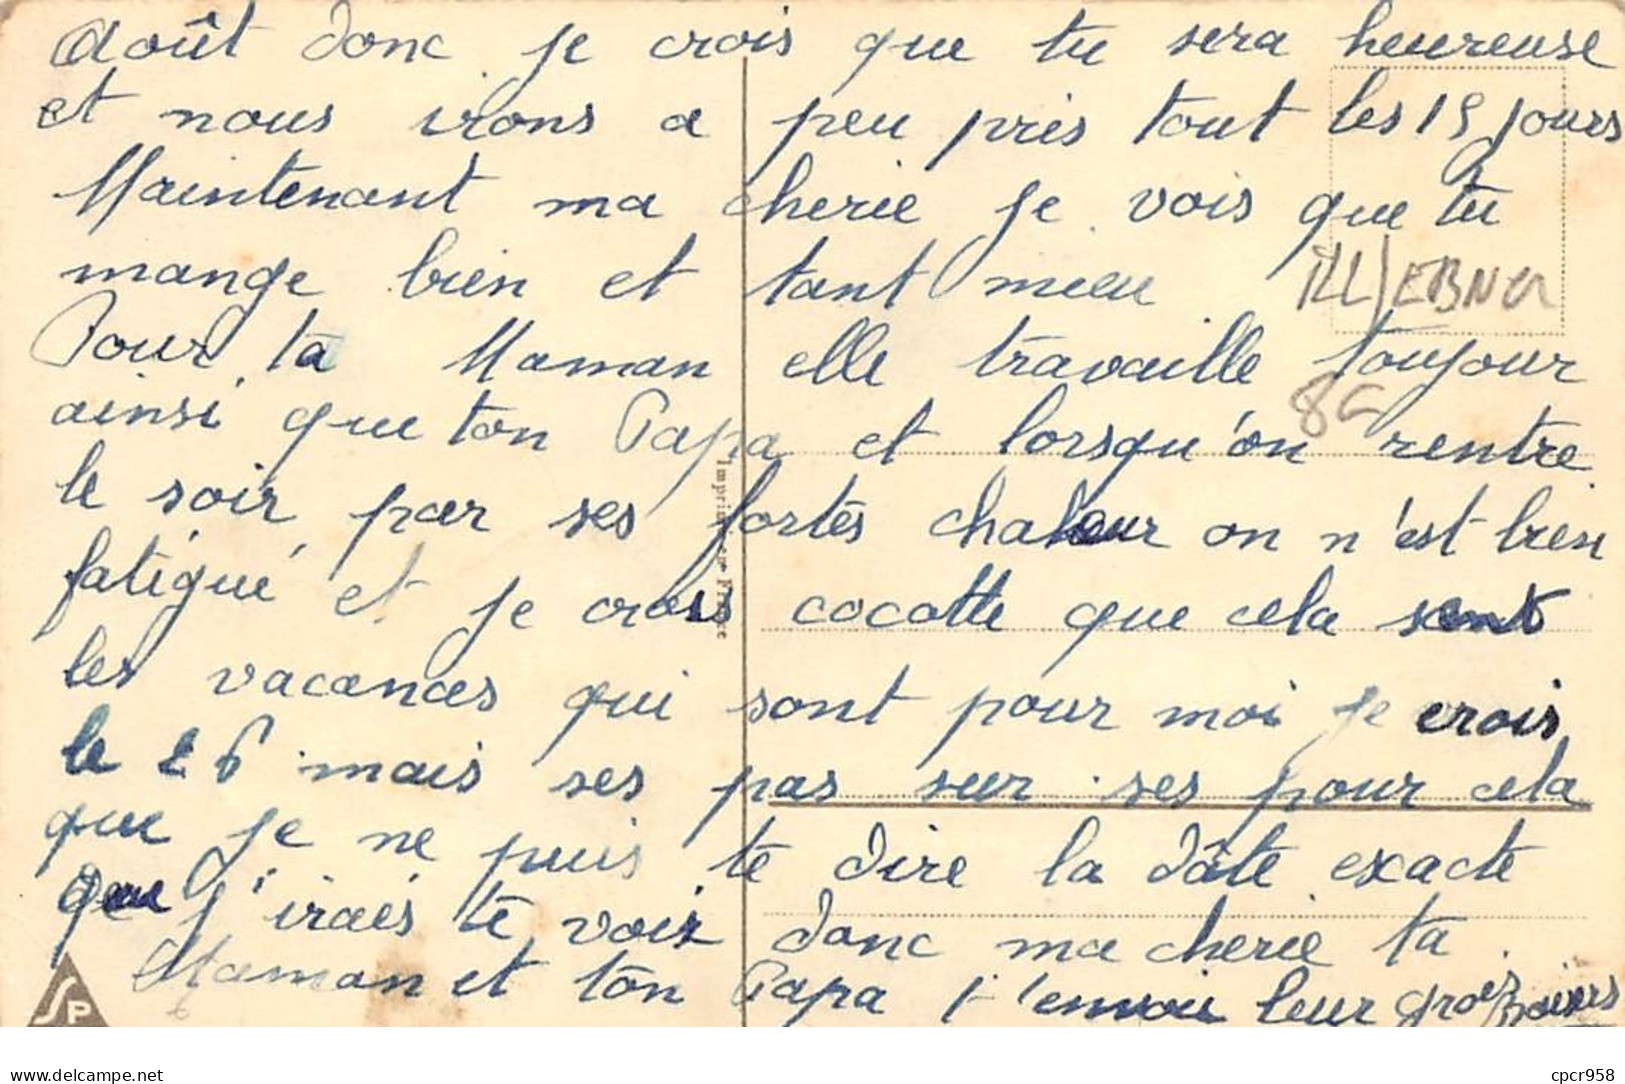 Août donc je crois que tu sera heureuse
et nous irons a peu près tout les 15 jours
Maintenant ma cherie je vois que tu
mange bien et tant mieu
ILL/EBNER
Pour ta Maman elle travaille toujour
8C
ainsi que ton Papa et lorsqu'on rentre
le soir par ses fortes chaleur on n'est bien
fatigué et je crois cocotte que cela sent
les vacances qui sont pour moi je crois
le 26 mais ses pas sur ses pour cela
que je ne puis te dire la dâte exacte
que j'irais te voir donc ma cherie ta
Maman et ton Papa t'envoi leur gros baisers
Imprimé en France
SP
www.delcampe.net
cpcr958